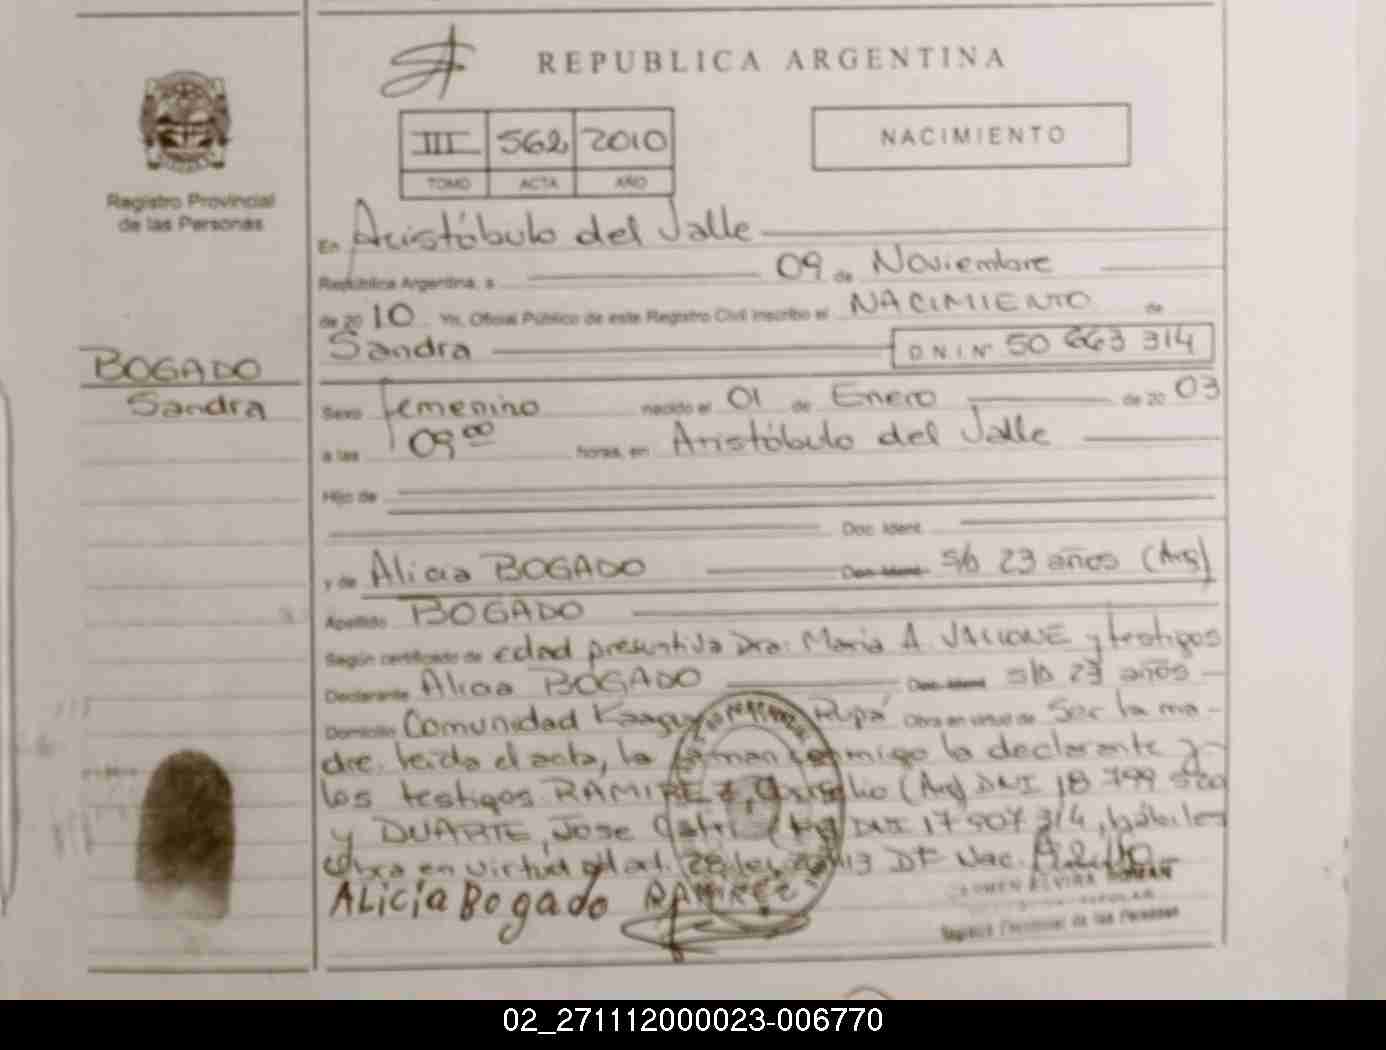 REPUBLICA ARGENTINA
III 562 2010
TOMO ACTA AÑO
NACIMIENTO
Registro Provincial
de las Personas
BOGADO
Sandra
En Aristóbulo del Valle
República Argentina, a 09 de Noviembre
de 2010 Yo, Oficial Público de este Registro Civil inscribo el NACIMIENTO de
Sandra D.N.I Nº 50 663 314
Sexo femenino nacido el 01 de Enero de 2003
a las 09 00 horas, en Aristóbulo del Valle
Hijo de
Doc. Ident.
y de Alicia BOGADO Doc. Ident. s/d 23 años (Arg)
Apellido BOGADO
Según certificado de edad presuntiva Dra: María A. y testigos
Declarante Alicia BOGADO Doc. Ident. s/d 23 años
Domicilio Comunidad Rupá Obra en virtud de Ser la ma-
dre. leída el acta, la firman conmigo la declarante y
los testigos RAMIREZ, (Arg) DNI 18 799
y DUARTE, Jose DNI 17 907 314, hábiles
obra en virtud del art. 28 Nac.
ALiciA BogAdo RAMIREZ
ELVIRA
Registro Provincial de las Personas
02_271112000023-006770